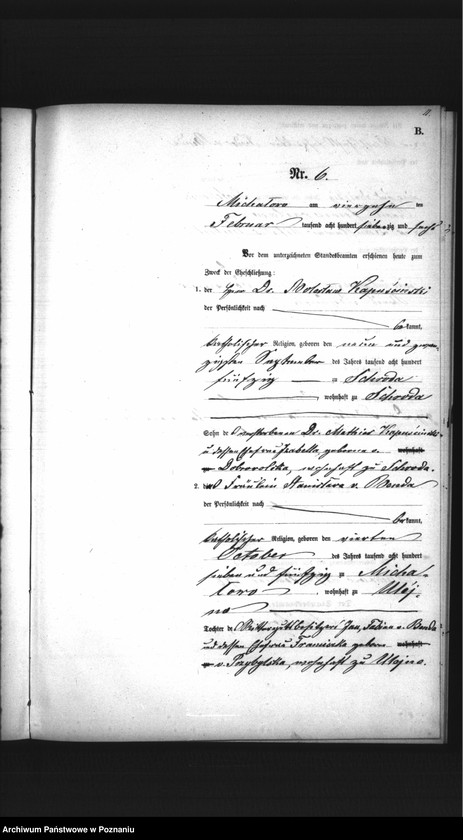 B.
Nr. 6.
Michalowo am vierzehn ten
Februar tausend acht hundert siebenzig und sechs
Vor dem unterzeichneten Standesbeamten erschienen heute zum
Zweck der Eheschließung:
1. der Herr Dr. Kapuściński
der Persönlichkeit nach
be kannt,
katholischer Religion, geboren den neun und zwan-
zigsten September des Jahres tausend acht hundert
fünfzig zu Schroda
, wohnhaft zu Schroda
Sohn des verstorbenen Dr. Mathias Kapuściński
u dessen Ehefrau Isabella geborene v. wohnhaft
zu Dobrowolska, wohnhaft zu Schroda.
2. die Fräulein Stanislawa v. Benda
der Persönlichkeit nach
be kannt,
katholischer Religion, geboren den vierten
October des Jahres tausend acht hundert
sieben und fünfzig zu Micha-
lowo, wohnhaft zu Ulej-
no
Tochter des Rittergutsbesitzers v. Benda
und dessen Ehefrau Franciska geborene wohnhaft
zu v. Przybylska, wohnhaft zu Ulejno.
Archiwum Państwowe w Poznaniu